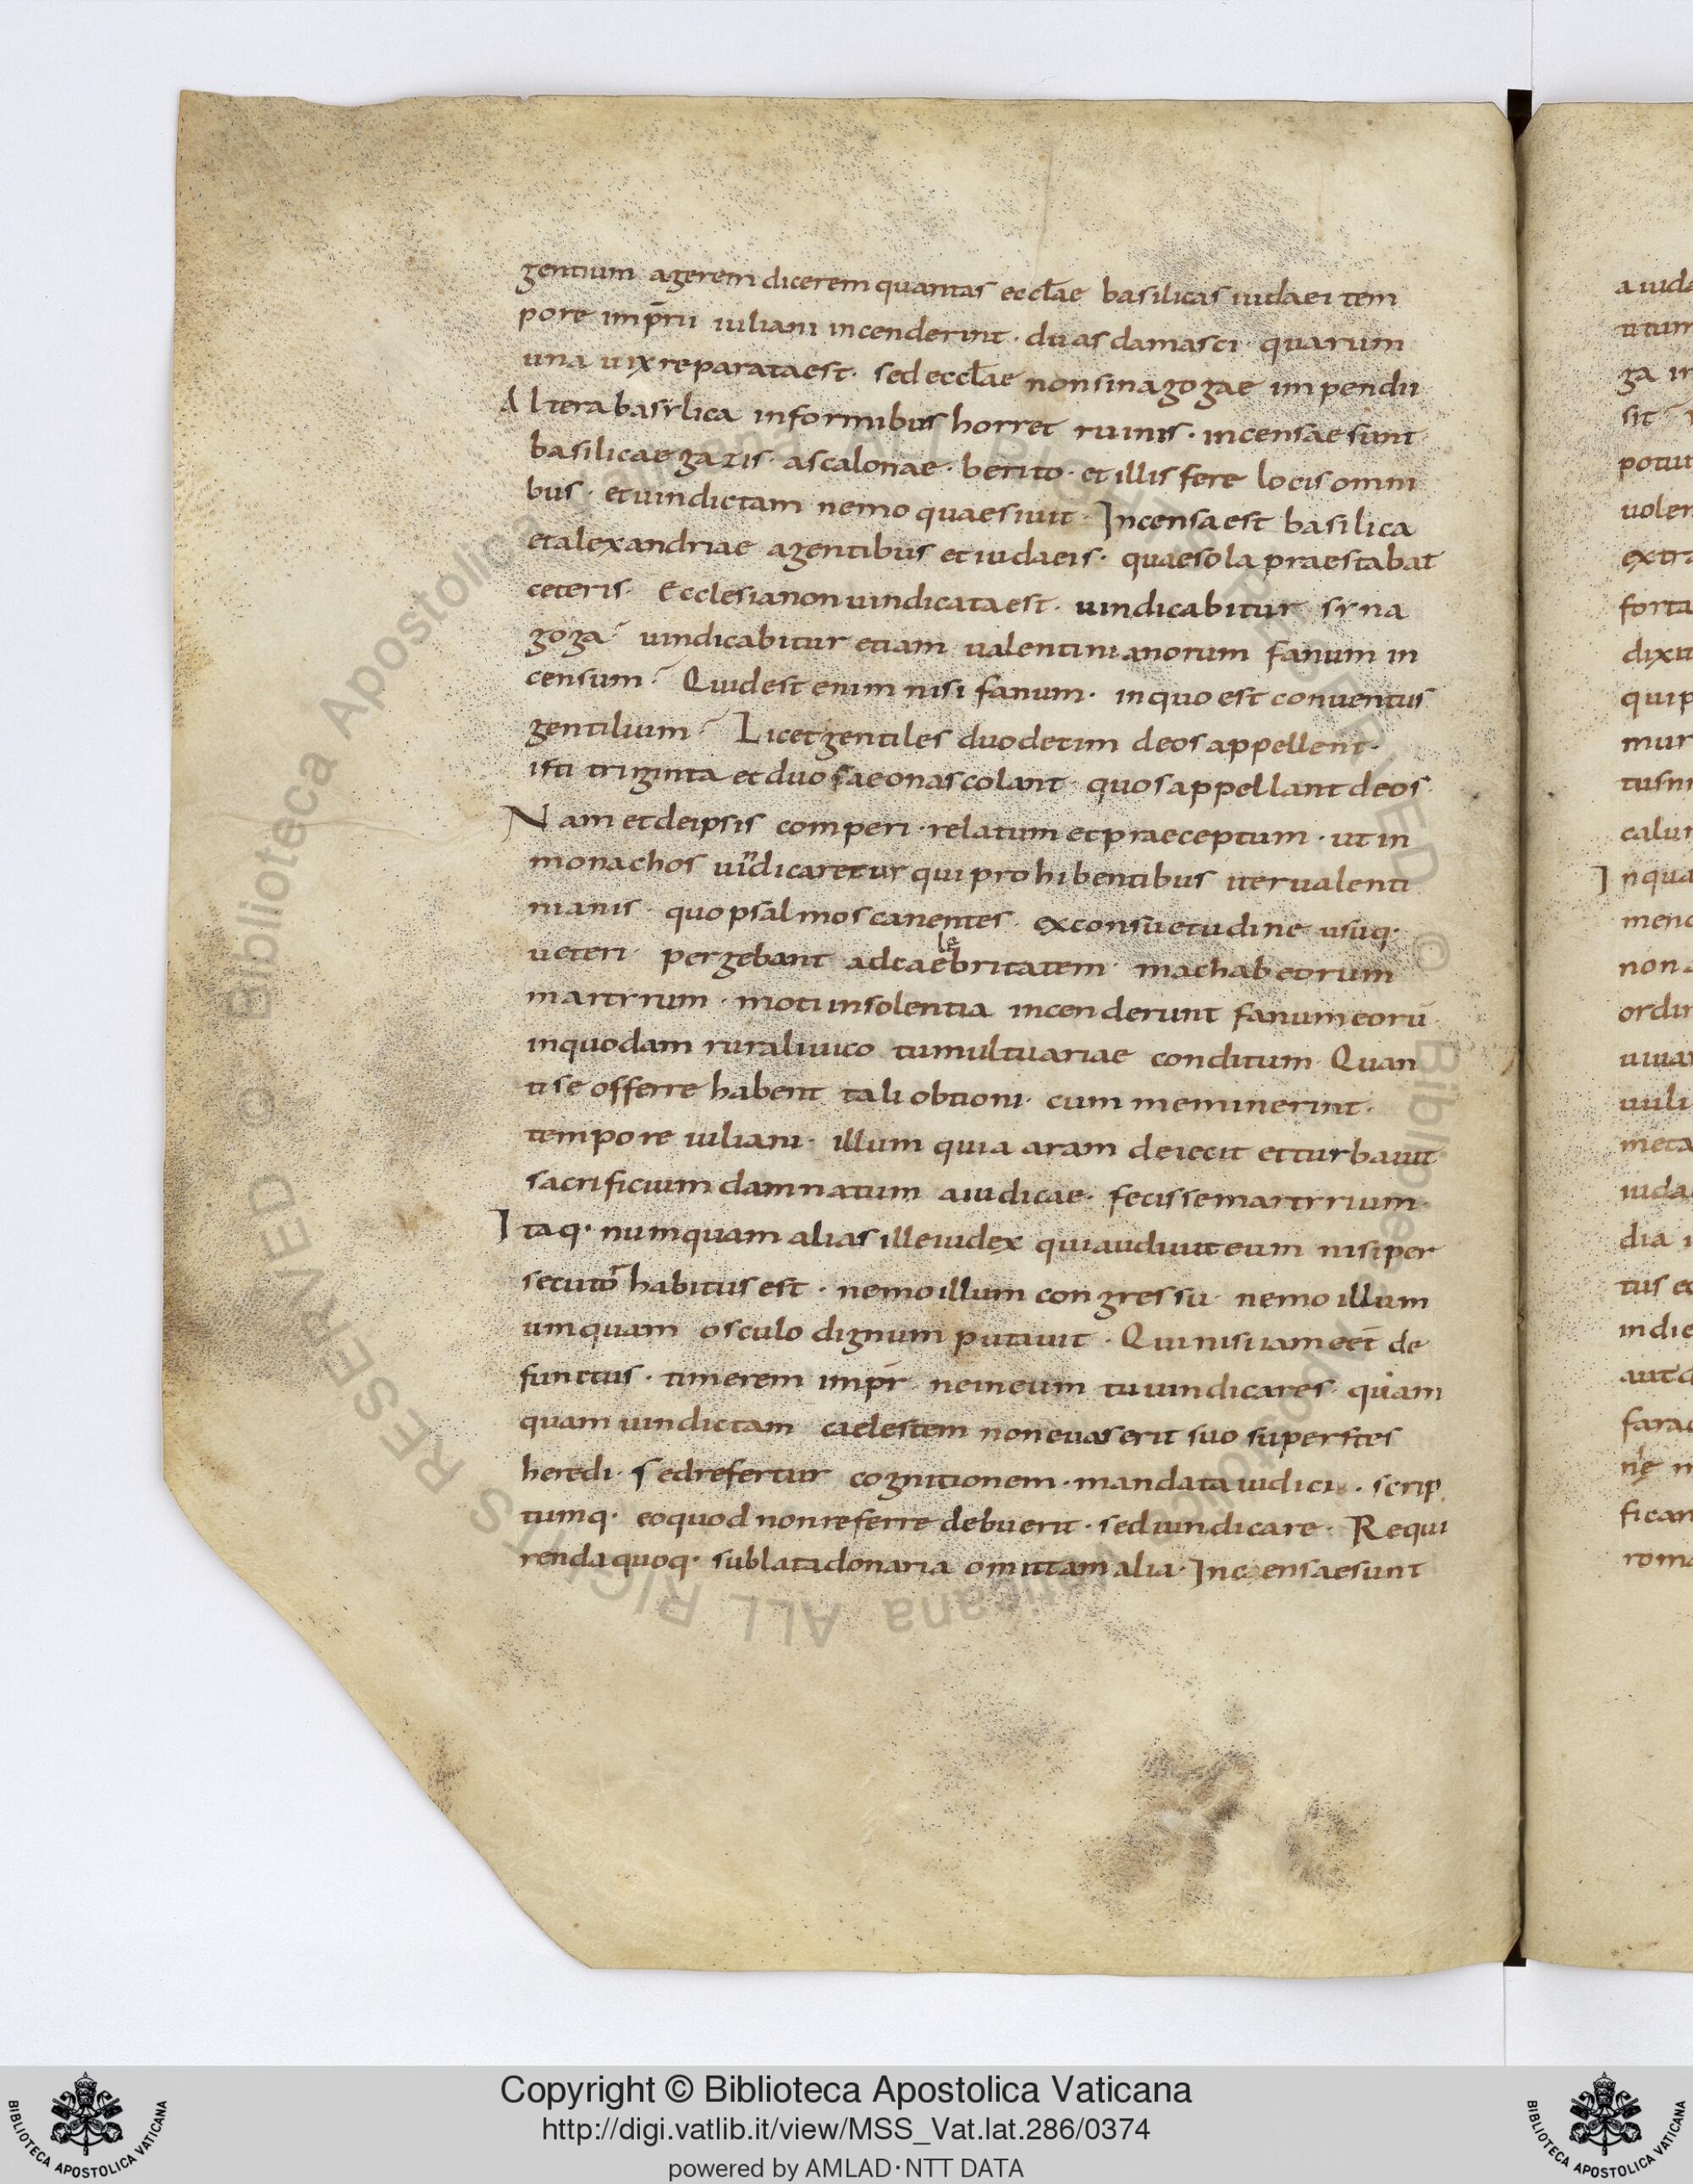 gentium agerem dicerem quantas eccl̄ae basilicas iudaei tem
pore imp̄rii iuliani incenderint · duas damasci · quarum
una uix reparata est · sed eccl̄ae non sinagogae impendii
Altera basylica informibus horret ruinis · incensae sunt
basilicae gazis · ascalonae · berito · et illis fere locis omni
bus · et uindictam nemo quaesiuit · Incensa est basilica
et alexandriae agentibus et iudaeis · quae sola praestabat
ceteris · Ecclesia non uindicata est · uindicabitur syna
goga? uindicabitur etiam ualentinianorum fanum in
censum? Quid est enim nisi fanum · in quo est conuentus
gentilium? Licet gentiles duodecim deos appellent ·
isti triginta et duos aeonas colant · quos appellant deos ·
Nam et de ipsis comperi · relatum et praeceptum · ut in
monachos uindicaretur qui prohibentibus iter ualenti
nianis · quo psalmos canentes · ex consuetudine usuq·
ueteri · pergebant ad caelebritatem · machabeorum
martyrum · moti insolentia incenderunt fanum eorū
in quodam rurali uico tumultuariae conditum · Quan
ti se offerre habent tali obtioni · cum meminerint ·
tempore iuliani · illum qui a aram deiecit et turbauit
sacrificium damnatum a iudicae · fecisse martyrium ·
Itaq· numquam alias ille iudex qui audiuit eum nisi per
secutor habitus est · nemo illum congressu · nemo illum
umquam osculo dignum putauit · Qui nisi iam eēt de
functus · timerem imp̄r ne in eum tu uindicares · quam
quam uindictam caelestem non euaserit suo superstes
heredi · sed refertur cognitionem · mandata iudici · scrip
tumq· eo quod non referre debuerit · sed uindicare · Requi
renda quoq· sublata donaria omittam alia · Incensae sunt
Copyright © Biblioteca Apostolica Vaticana
http://digi.vatlib.it/view/MSS_Vat.lat.286/0374
powered by AMLAD·NTT DATA